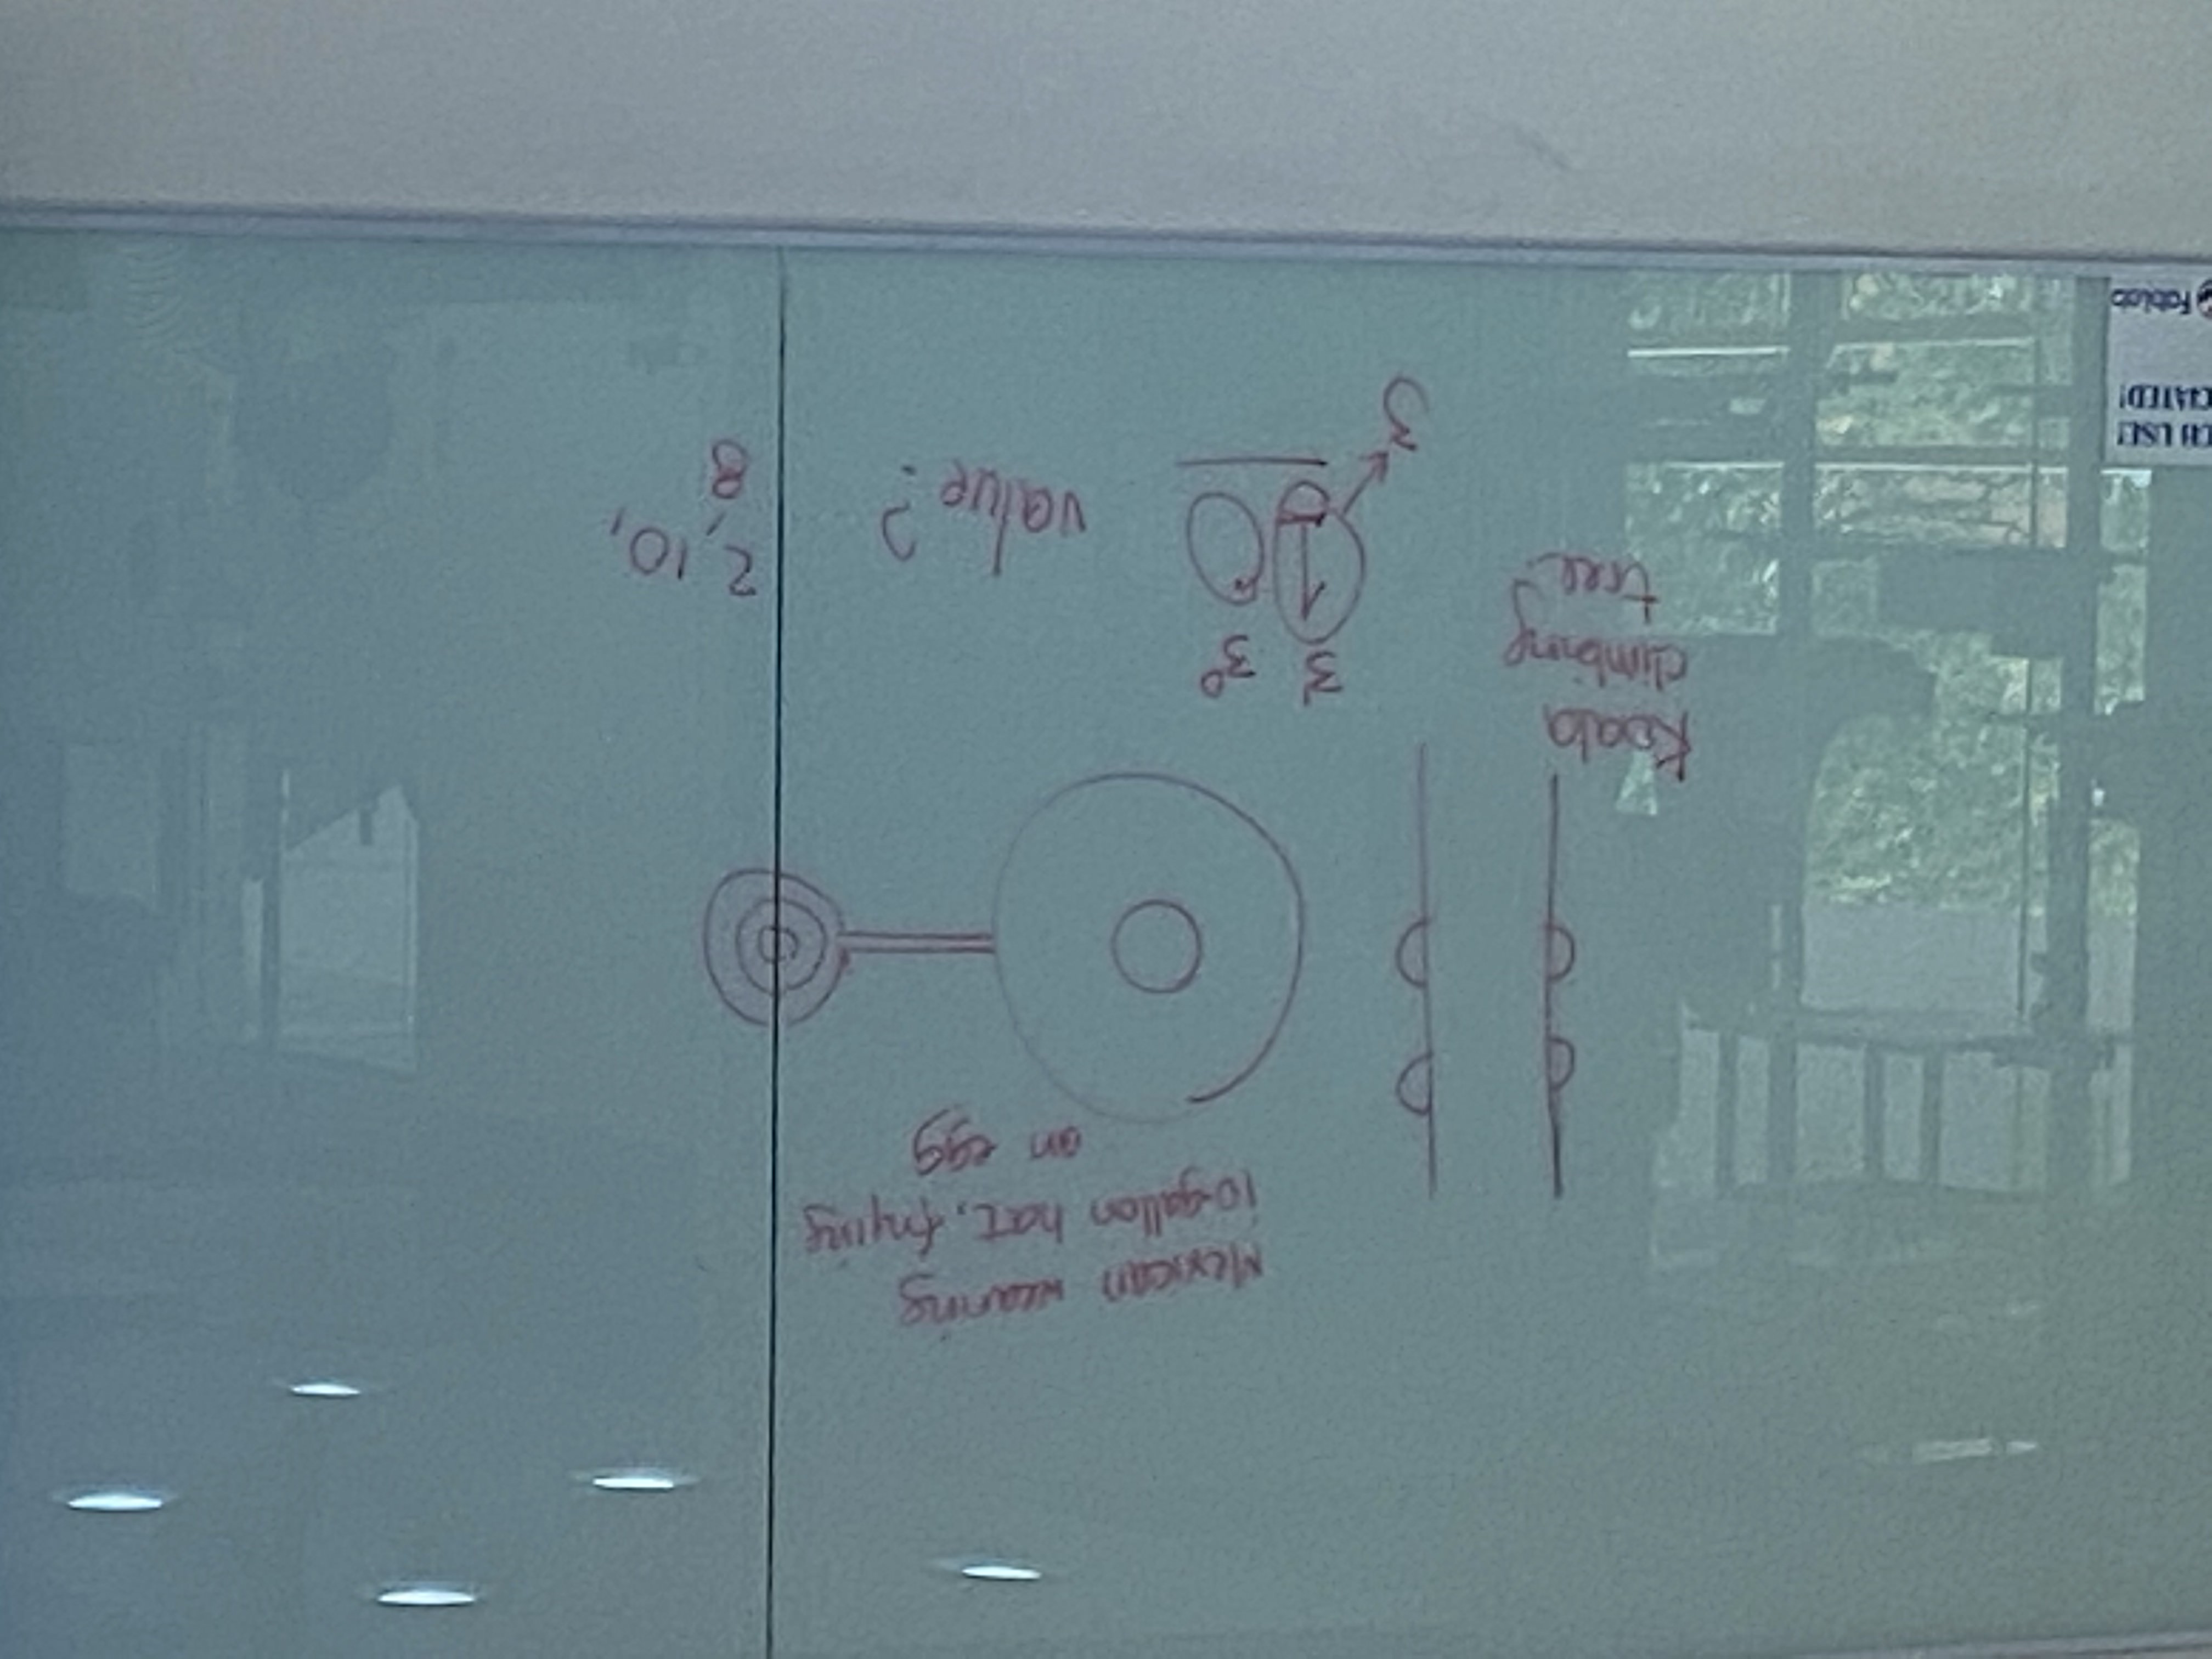 Mexican wearing
10-gallon hat, frying
an egg
Koala
climbing
tree
3¹ 3⁰
10
value?
2, 10,
8
3
CH USE!
CIATED!
FabLab